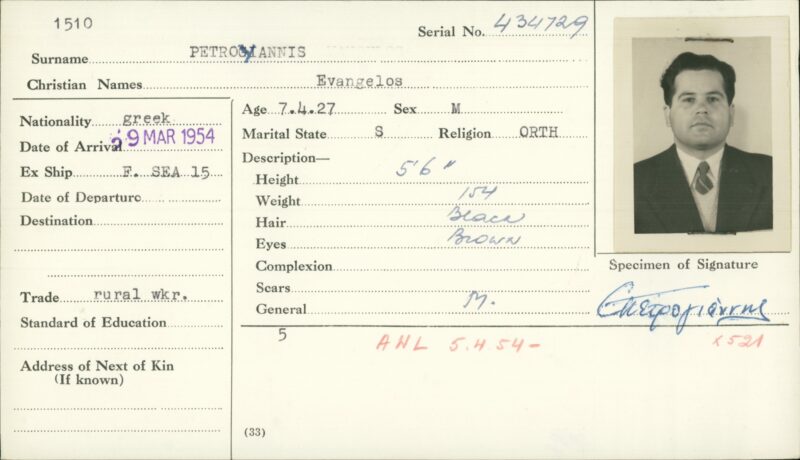 1510
Serial No. 434729
Surname PETROGYANNIS
Christian Names Evangelos
Nationality greek
Date of Arrival 29 MAR 1954
Ex Ship F. SEA 15
Date of Departure
Destination
Trade rural wkr.
Standard of Education
Address of Next of Kin
(If known)
Age 7.4.27 Sex M
Marital State S Religion ORTH
Description—
Height 5'6"
Weight 154
Hair Black
Eyes Brown
Complexion
Scars
General M.
5
(33)
Specimen of Signature
Επετρογιάννης
AHL 5.4.54-
x521